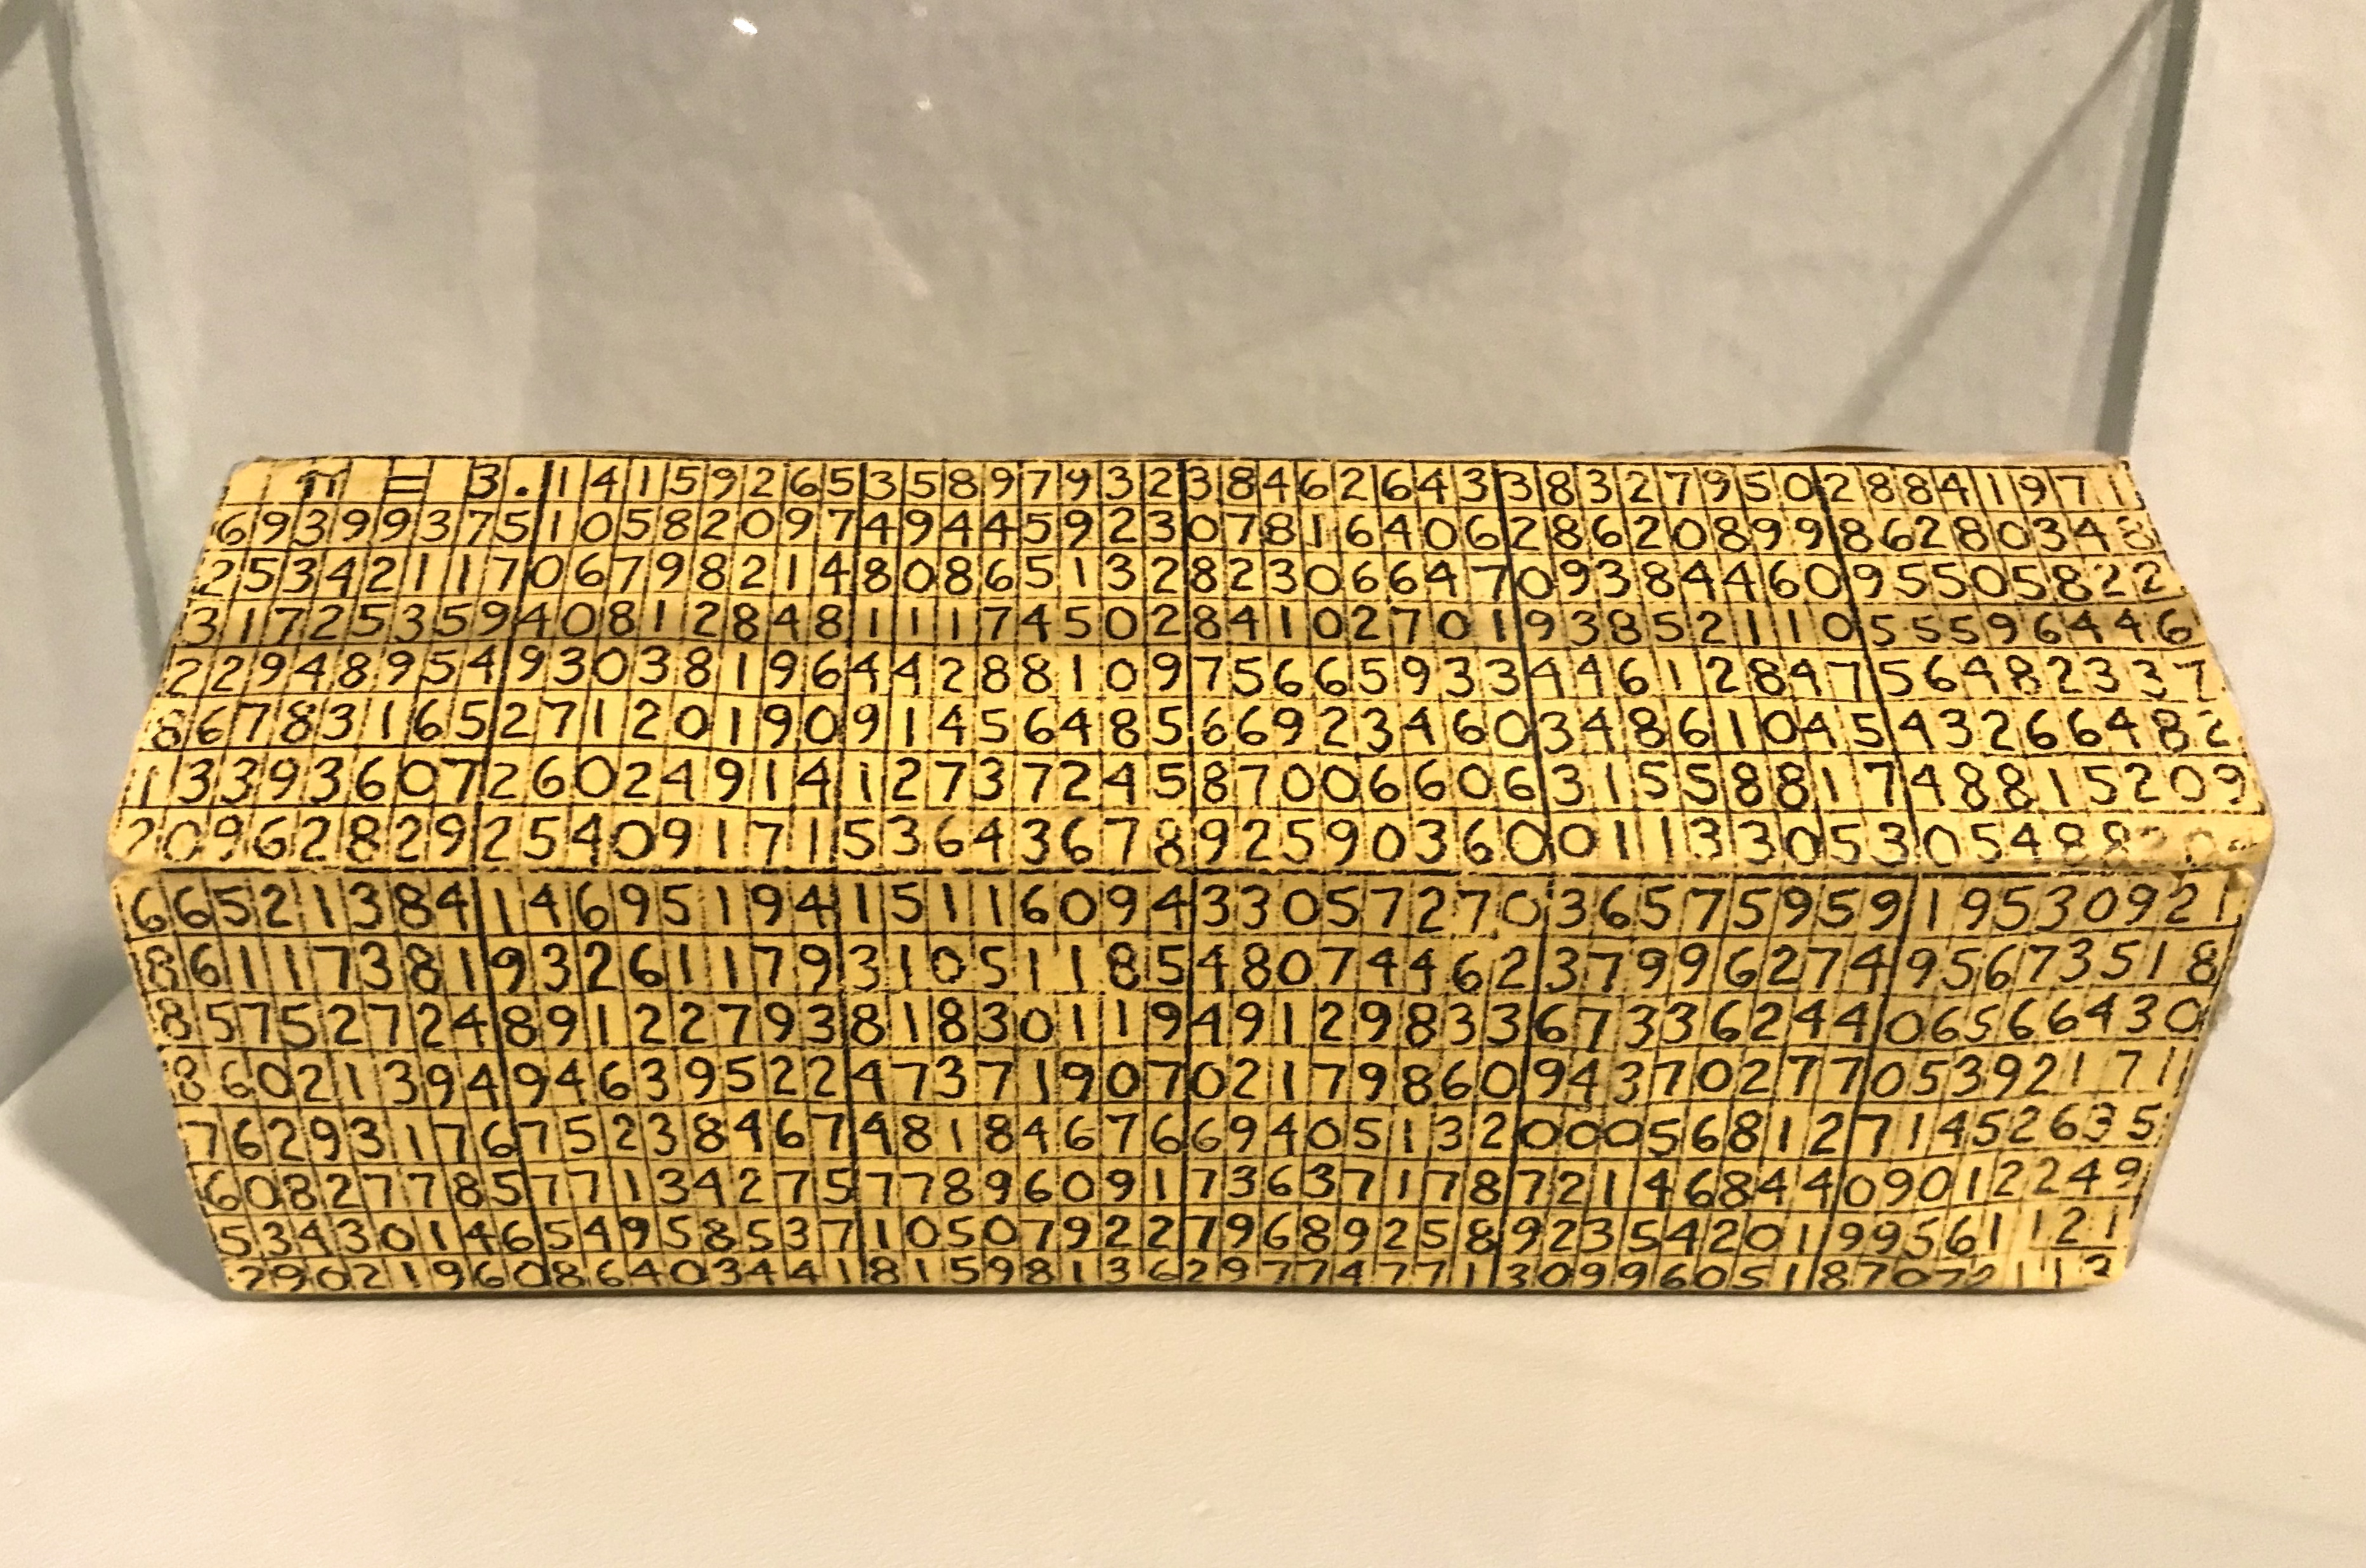 π = 3.1415926535897932384626433832795028841971
693993751058209749445923078164062862089986280348
253421170679821480865132823066470938446095505822
317253594081284811174502841027019385211055596446
229489549303819644288109756659334461284756482337
867831652712019091456485669234603486104543266482
133936072602491412737245870066063155881748815209
209628292540917153643678925903600113305305488204
665213841469519415116094330572703657595919530921
861173819326117931051185480744623799627495673518
857527248912279381830119491298336733624406566430
860213949463952247371907021798609437027705392171
762931767523846748184676694051320005681271452635
608277857713427577896091736371787214684409012249
534301465495853710507922796892589235420199561121
290219608640344181598136297747713099605187072113